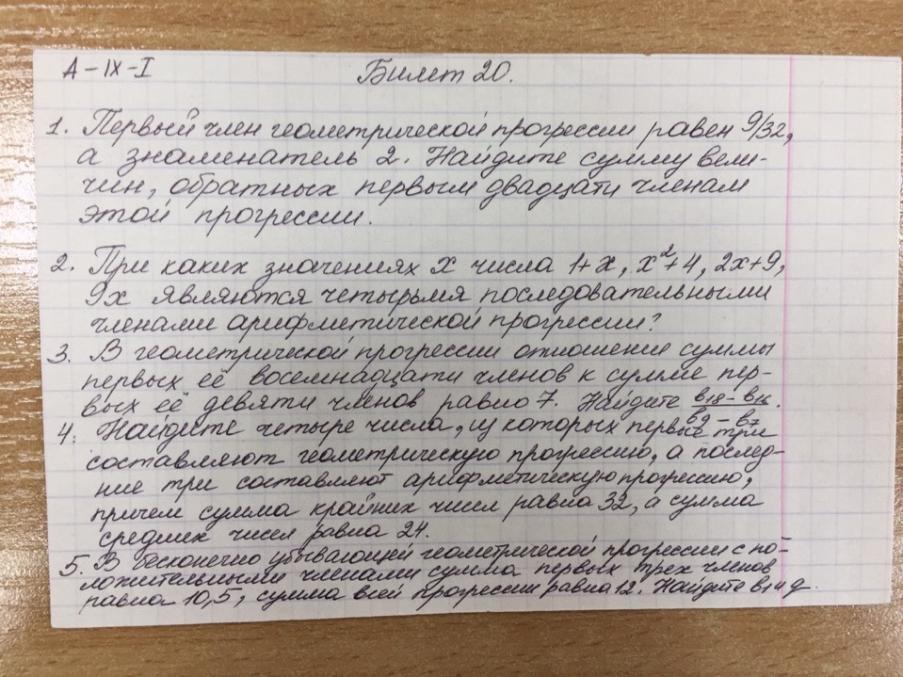 А-IX-I
Билет 20.
1. Первый член геометрической прогрессии равен 9/32,
а знаменатель 2. Найдите сумму вели-
чин, обратных первым двадцати членам
этой прогрессии.
2. При каких значениях x числа 1+x, x²+4, 2x+9,
9x являются четырьмя последовательными
членами арифметической прогрессии?
3. В геометрической прогрессии отношение суммы
первых её восемнадцати членов к сумме пер-
вых её девяти членов равно 7. Найдите (b₁₈ - b₁₆)/(b₉ - b₇).
4. Найдите четыре числа, из которых первые три
составляют геометрическую прогрессию, а послед-
ние три составляют арифметическую прогрессию,
причем сумма крайних чисел равна 32, а сумма
средних чисел равна 24.
5. В бесконечно убывающей геометрической прогрессии с по-
ложительными членами сумма первых трех членов
равна 10,5, сумма всей прогрессии равна 12. Найдите b₁ и q.